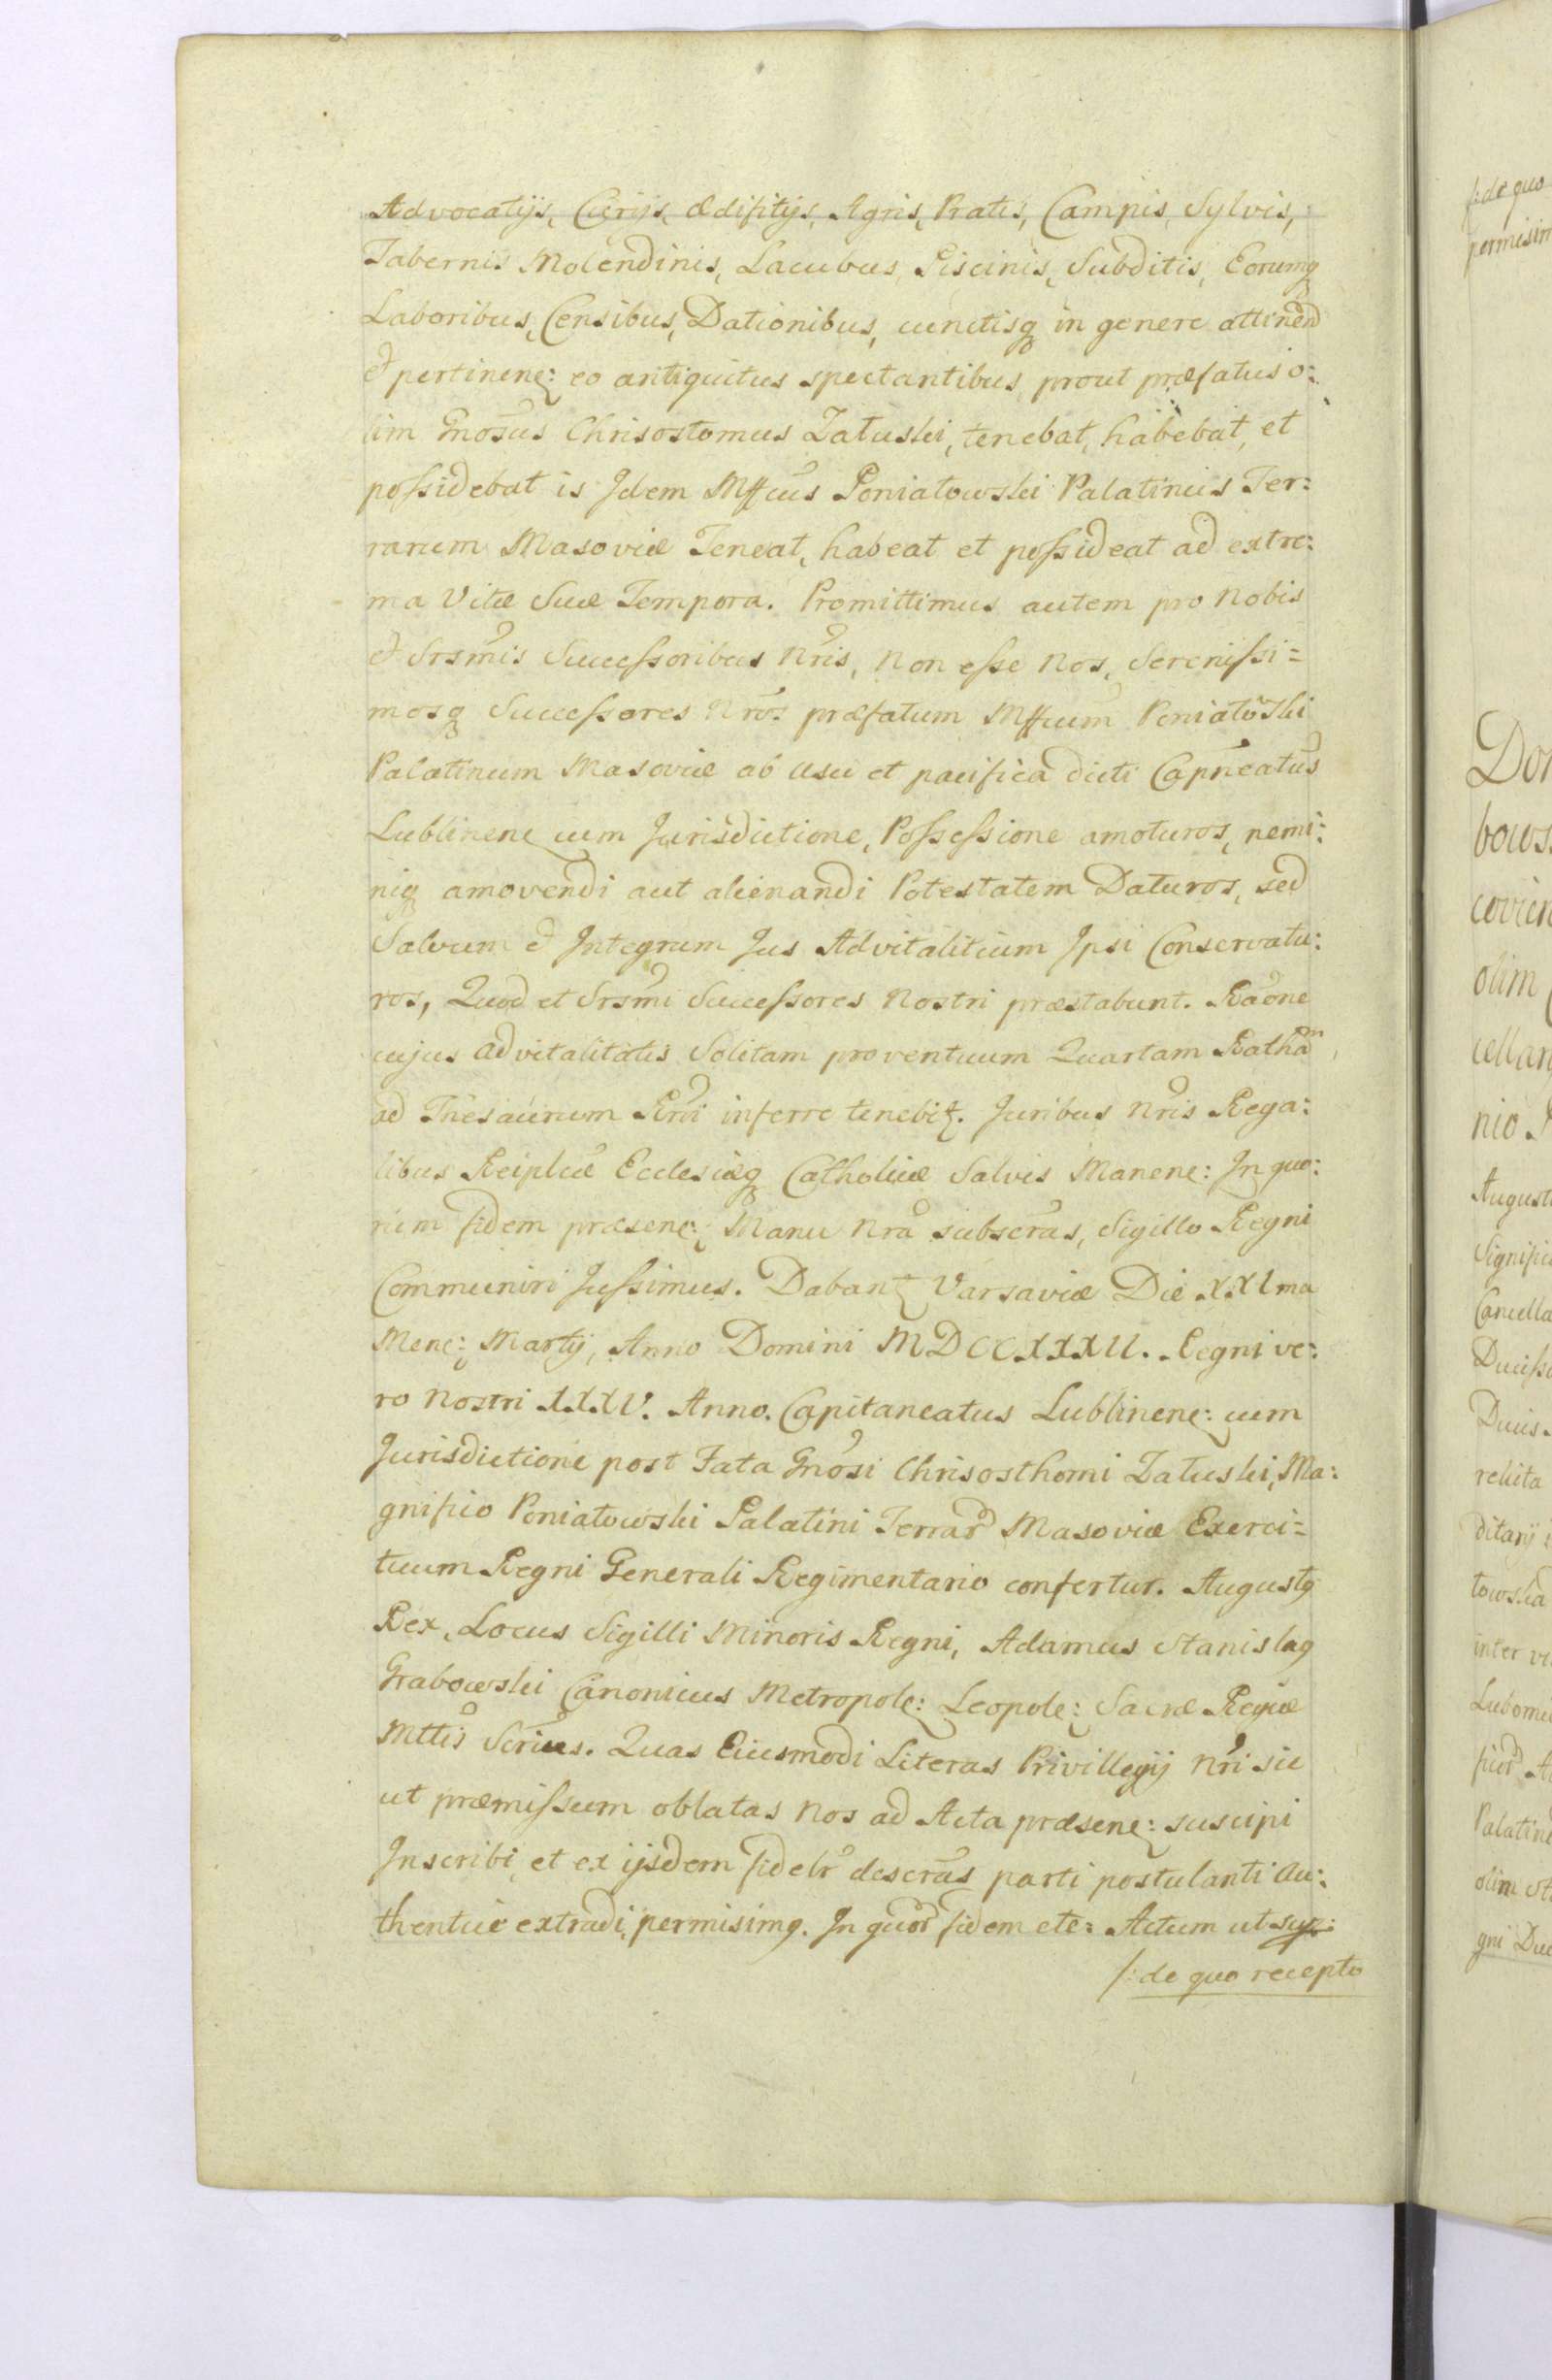 Advocatijs, Curijs, ædifitijs, Agris, Pratis, Campis, Sylvis,
Tabernis Molendinis, Lacubus, Piscinis, Subditis, Eorumq
Laboribus, Censibus, Dationibus, cunctisq in genere attinend
et pertinen: eo antiquitus spectantibus, prout præfatus o:
lim Gnosus Chrisostomus Załuski, tenebat, habebat, et
possidebat is Idem Mffcus Poniatowski Palatinus Ter:
rarum Masoviæ Teneat, habeat et possideat ad extre:
ma Vitæ Suæ Tempora. Promittimus autem pro Nobis
et Srsmis Successoribus Nris, Non esse Nos, Serenissi=
mosq Successores Nros præfatum Mffcum Poniatoski
Palatinum Masoviæ ab Usu et pacifica dicti Capneatus
Lublinen cum Jurisdictione, Possessione amoturos, nemi:
niq amovendi aut alienandi Potestatem Daturos, sed
Salvum et Integrum Jus Advitalitium Ipsi Conservatu:
ros, Quod et Srsmi Successores Nostri præstabunt. Raone
cujus advitalitatis Solitam proventuum Quartam Ratham
ad Thesaurum Rni inferre tenebit. Juribus Nris Rega:
libus Reiplcæ Ecclesiæq Catholicæ Salvis Manen: In quo:
rum fidem præsen: Manu Nra subscras, Sigillo Regni
Communiri Jussimus. Dabant Varsaviæ Die XXIma
Men: Martij, Anno Domini MDCCXXXII. Regni ve:
ro Nostri XXXV. Anno. Capitaneatus Lublinen: cum
Jurisdictione post Fata Gnosi Chrisosthomi Załuski, Ma:
gnifico Poniatowski Palatini Terrar Masoviæ Exerci=
tuum Regni Generali Regimentario confertur. Augustq
Rex, Locus Sigilli Minoris Regni, Adamus Stanislaq
Grabowski Canonicus Metropole: Leopole: Sacræ Regiæ
Mttis Scrius. Quas Eiusmodi Literas Privillegij Nri sic
ut præmissum oblatas Nos ad Acta præsen: suscipi
Inscribi, et ex ijsdem fidelr descras parti postulanti Au:
thentice extradi, permisimq. In quor fidem etc: Actum ut sup:
/: de quo recepto
/: de quo
permisim
Don
bows
covien
olim
cellan
nio
August
Signific
Cancella
Ducissa
Ducis.
relicta
ditarij
towska
inter vi
Lubomi
ficor
Palatin
olim St
gni Duc